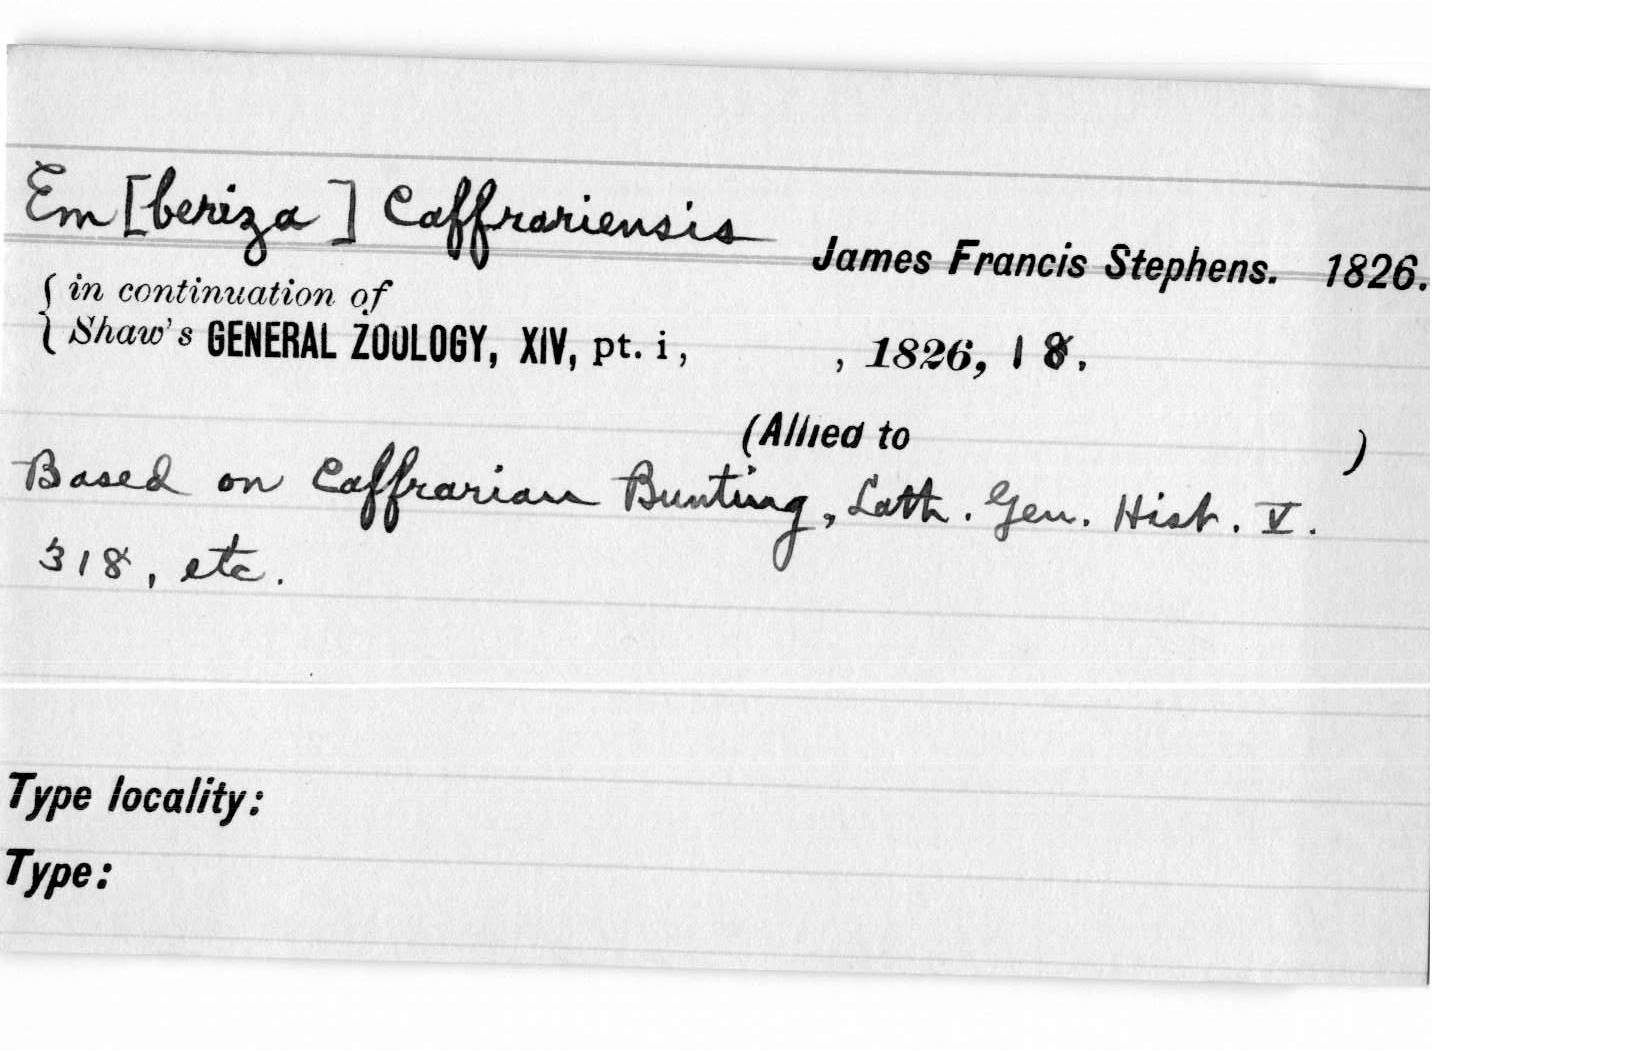 Em[beriza] Caffrariensis
James Francis Stephens. 1826.
{ in continuation of
Shaw's GENERAL ZOOLOGY, XIV, pt. i, , 1826, 18.
(Allied to )
Based on Caffrarian Bunting, Lath. Gen. Hist. V.
318, etc.
Type locality:
Type: